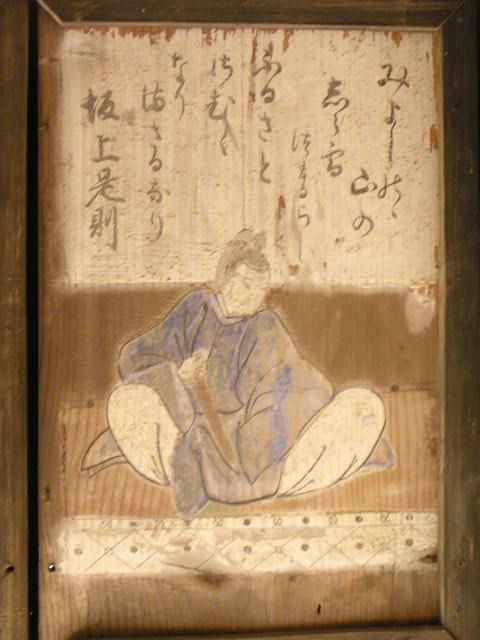 みよしのゝ
山の
しら雪
つもるら
ふるさと
さむく
なり
まさるなり
坂上是則